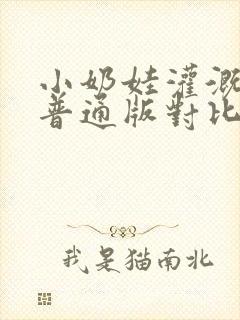 小奶娃灌溉
普通版對比
我是猫南北